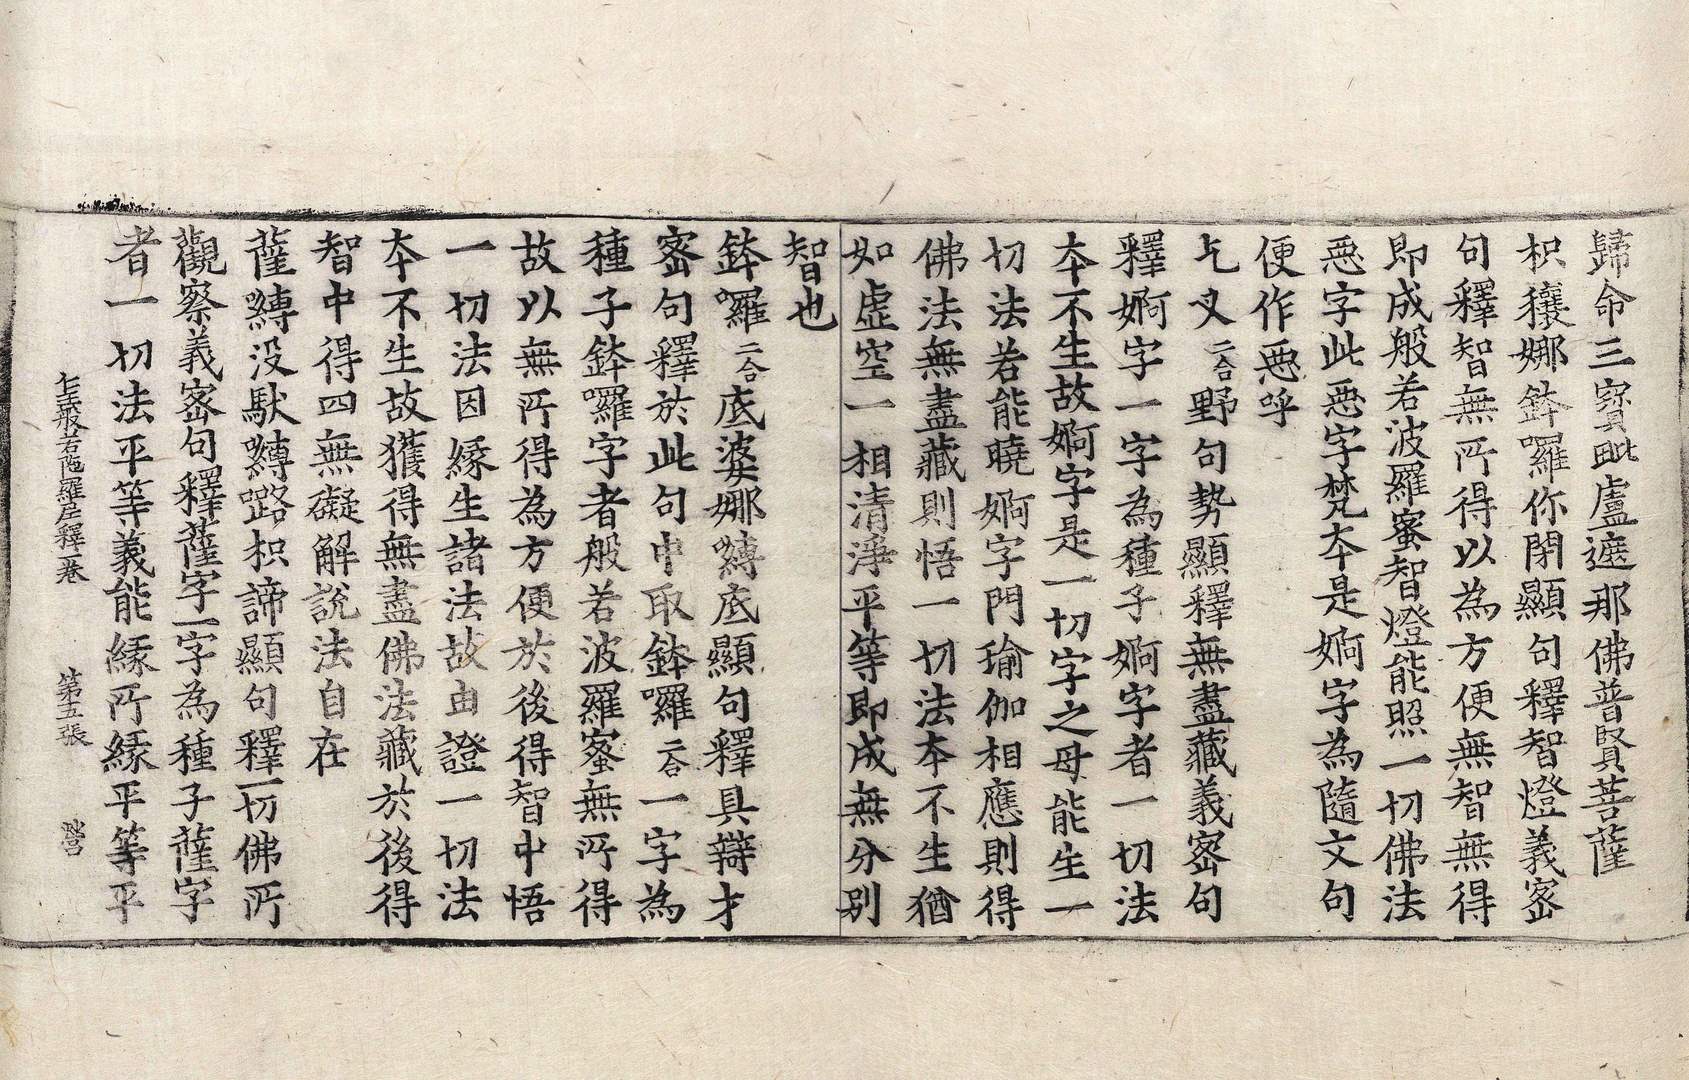 歸命三寶毗盧遮那佛普賢菩薩
枳穰娜鉢囉你閉顯句釋智燈義宻
句釋智無所得以為方便無智無得
即成般若波羅蜜智燈能照一切佛法
惡字此惡字梵夲是婀字為隨文句
便作惡呼
乞叉二合野句勢顯釋無盡藏義宻句
釋婀字一字為種子婀字者一切法
夲不生故婀字是一切字之母能生一
切法若能曉婀字門瑜伽相應則得
佛法無盡藏則悟一切法夲不生猶
如虛空一相清淨平等即成無分別
智也
鉢囉二合底婆娜嚩底顯句釋具辯才
宻句釋於此句中取鉢囉二合一字為
種子鉢囉字者般若波羅蜜無所得
故以無所得為方便於後得智中悟
一切法因緣生諸法故由證一切法
夲不生故獲得無盡佛法藏於後得
智中得四無礙解說法自在
薩嚩没馱嚩路枳諦顯句釋一切佛所
觀察義宻句釋薩字一字為種子薩字
者一切法平等義能緣所緣平等平
仁王般若陁羅尼釋一卷 第五張 營